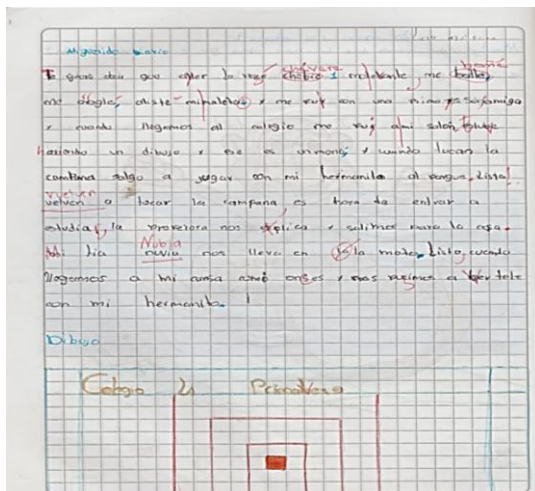 Miguerido diario
chévere bañé
Te gnao dein que ayer la vegé chebre 1 endelante, me balle,
me dbgle, aliste mimaleta y me vuy con una mima y su amiga
y cuando llegemos al colegio me vuy ami salón, estube
haciendo un dibujo y ese es unmonq y cuando tucan la
campana salgo a jugar con mi hermanila al pengue, Listo!
vuelven
velven a tocar la campana, es hora de entrar a
estudiar, la profesora nos esplica y salimos para la casa.
Nubia
Mi tia nuvia nos lleva en la moto, Listo, cuando
llegemos a mi casa comó onses y nos pusimos a ver tele
con mi hermanito.
Dibujo
Colegio La Primavera